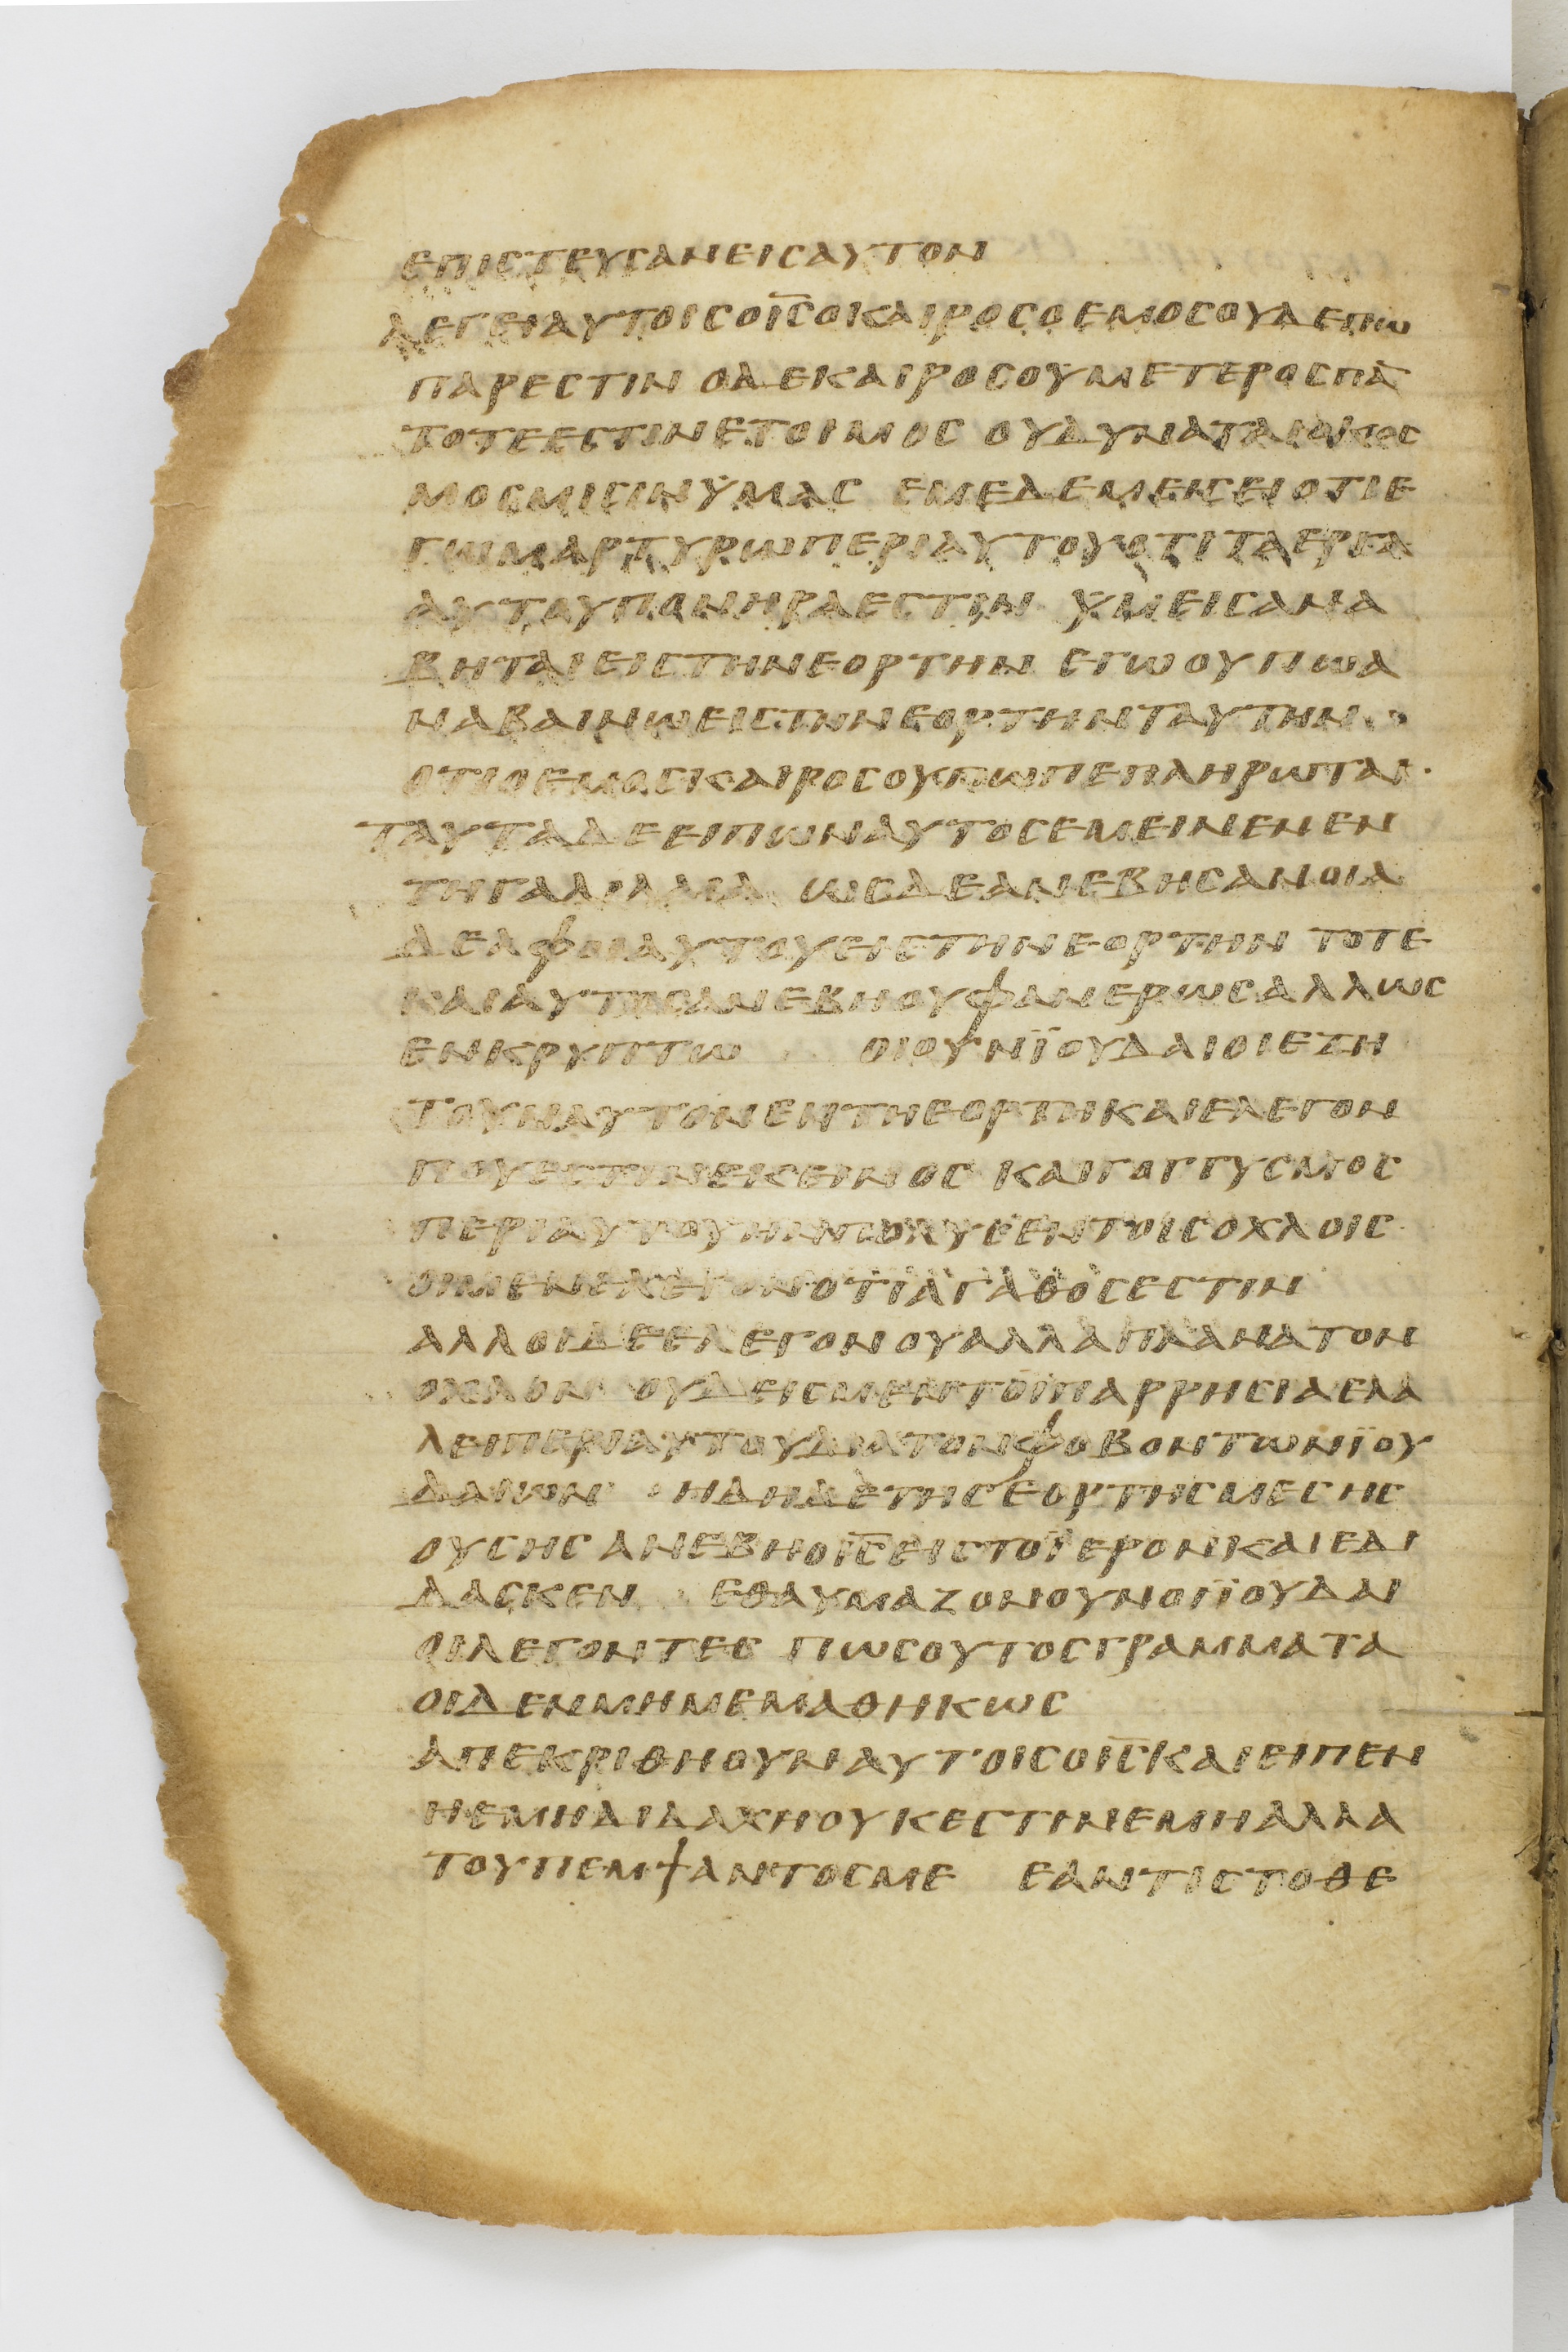 ΕΠΙϹΤΕΥϹΑΝΕΙϹΑΥΤΟΝ
ΛΕΓΕΙΑΥΤΟΙϹΟΙ̅Ϲ̅ΟΚΑΙΡΟϹΟΕΜΟϹΟΥΔΕΠΩ
ΠΑΡΕϹΤΙΝ ΟΔΕΚΑΙΡΟϹΟΥΜΕΤΕΡΟϹΠΑ̅
ΤΟΤΕΕϹΤΙΝΕΤΟΙΜΟϹ ΟΥΔΥΝΑΤΑΙΟΚΟϹ
ΜΟϹΜΙϹΙΝΫΜΑϹ ΕΜΕΔΕΜΕΙϹΕΙΟΤΙΕ
ΓΩΜΑΡΤΥΡΩΠΕΡΙΑΥΤΟΥΟΤΙΤΑΕΡΓΑ
ΑΥΤΟΥΠΟΝΗΡΑΕϹΤΙΝ ΫΜΕΙϹΑΝΑ
ΒΗΤΑΙΕΙϹΤΗΝΕΟΡΤΗΝ ΕΓΩΟΥΠΩΑ
ΝΑΒΑΙΝΩΕΙϹΤΗΝΕΟΡΤΗΝΤΑΥΤΗΝ
ΟΤΙΟΕΜΟϹΚΑΙΡΟϹΟΥΠΩΠΕΠΛΗΡΩΤΑΙ·
ΤΑΥΤΑΔΕΕΙΠΩΝΑΥΤΟϹΕΜΕΙΝΕΝΕΝ
ΤΗΓΑΛΙΛΑΙΑ ΩϹΔΕΑΝΕΒΗϹΑΝΟΙΑ
ΔΕΛΦΟΙΑΥΤΟΥΕΙϹΤΗΝΕΟΡΤΗΝ ΤΟΤΕ
ΚΑΙΑΥΤΟϹΑΝΕΒΗΟΥΦΑΝΕΡΩϹΑΛΛΩϹ
ΕΝΚΡΥΠΤΩ ΟΙΟΥΝΪΟΥΔΑΙΟΙΕΤΗ
ΤΟΥΝΑΥΤΟΝΕΝΤΗΕΟΡΤΗΚΑΙΕΛΕΓΟΝ
ΠΟΥΕϹΤΙΝΕΚΕΙΝΟϹ ΚΑΙΓΟΓΓΥϹΜΟϹ
ΠΕΡΙΑΥΤΟΥΗΝΠΟΛΥϹΕΝΤΟΙϹΟΧΛΟΙϹ
ΟΙΜΕΝΕΛΕΓΟΝΟΤΙΑΓΑΘΟϹΕϹΤΙΝ
ΑΛΛΟΙΔΕΕΛΕΓΟΝΟΥΑΛΛΑΠΛΑΝΑΤΟΝ
ΟΧΛΟΝ ΟΥΔΕΙϹΜΕΝΤΟΙΠΑΡΡΗϹΙΑΕΛΑ
ΛΕΙΠΕΡΙΑΥΤΟΥΔΙΑΤΟΝΦΟΒΟΝΤΩΝΪΟΥ
ΔΑΙΩΝ ΗΔΗΔΕΤΗϹΕΟΡΤΗϹΜΕϹΗϹ
ΟΥϹΗϹΑΝΕΒΗΟΙ̅Ϲ̅ΕΙϹΤΟΪΕΡΟΝΚΑΙΕΔΙ
ΔΑϹΚΕΝ ΕΘΑΥΜΑΖΟΝΟΥΝΟΙΪΟΥΔΑΙ
ΟΙΛΕΓΟΝΤΕϹ ΠΩϹΟΥΤΟϹΓΡΑΜΜΑΤΑ
ΟΙΔΕΝΜΗΜΕΜΑΘΗΚΩϹ
ΑΠΕΚΡΙΘΗΟΥΝΑΥΤΟΙϹΟΙ̅Ϲ̅ΚΑΙΕΙΠΕΝ
ΗΕΜΗΔΙΔΑΧΗΟΥΚΕϹΤΙΝΕΜΗΑΛΛΑ
ΤΟΥΠΕΜΨΑΝΤΟϹΜΕ ΕΑΝΤΙϹΤΟΘΕ